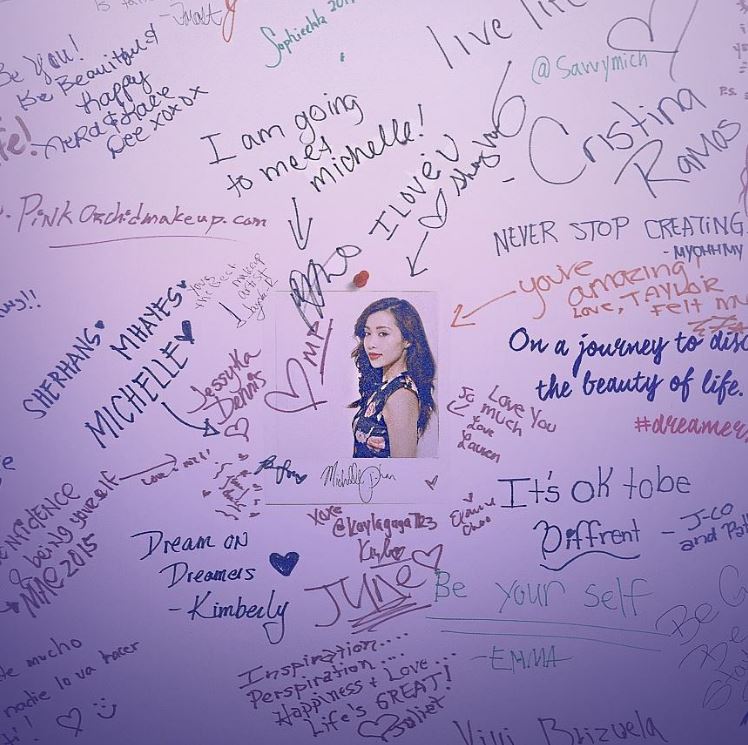 Sophiechka
live life
Be You!
Be Beautiful &
Happy
Nerd & Kalie
Cee xoxox
@Savvymich
I am going
to meet
michelle!
I LOVE U
Cristina
Ramos
P.S.
PinkOrchidmakeup.com
NEVER STOP CREATING
- MYOHHMY
you're
amazing
Love, TAYLOR
the Best
makeup
artist
SHERHANG
MHAYES
MICHELLE
MP
On a journey to disc
the beauty of life.
#dreamer
Jessyka
Dennis
Love You
So much
Love
Lauren
Michelle Phan
It's OK to be
Diffrent - J-CO
and
CONFIDENCE
& being yourself
MAC 2015
xoxo
@kaylagaga1123
Dream on
Dreamers
- Kimberly
JUNE
Be your self
- EMMA
mucho
nadie lo va hacer
Inspiration....
Perspiration....
Happiness + Love...
Life's GREAT!
Juliet
Vivi Brizuela